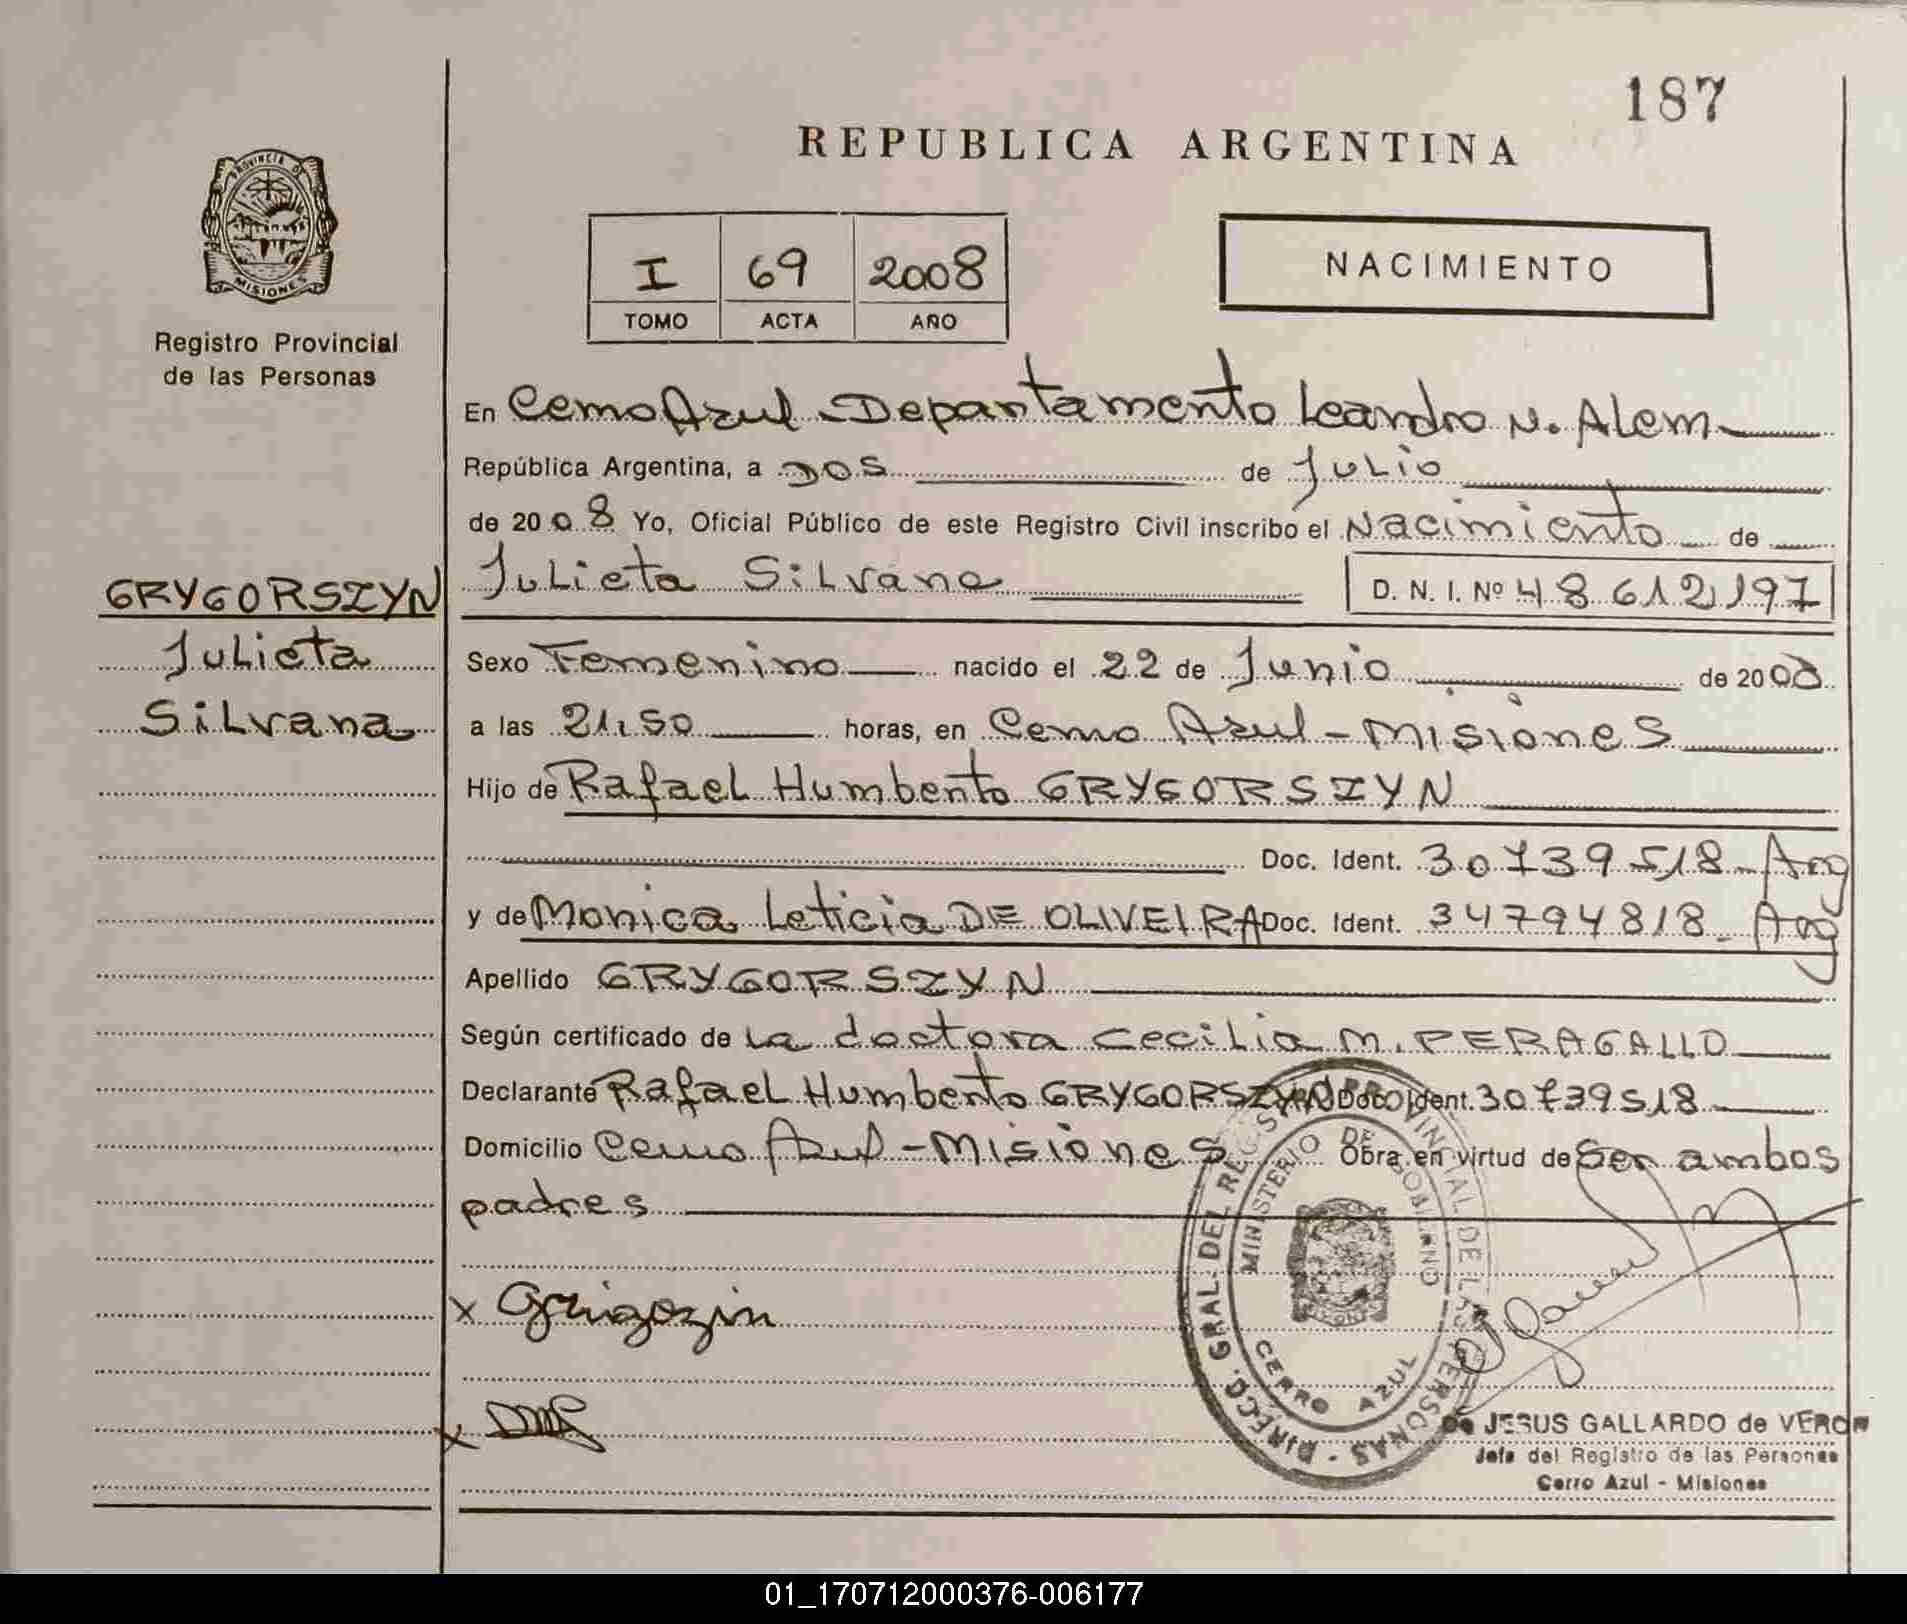 187
REPUBLICA ARGENTINA
PROVINCIA DE
MISIONES
Registro Provincial
de las Personas
I 69 2008
TOMO ACTA AÑO
NACIMIENTO
En Cerro Azul Departamento Leandro N. Alem
República Argentina, a DOS de Julio
de 2008 Yo, Oficial Público de este Registro Civil inscribo el Nacimiento de
Julieta Silvana D. N. I. Nº 48.612.197
GRYGORSZYN
Julieta
Silvana
Sexo Femenino nacido el 22 de Junio de 2008
a las 21,50 horas, en Cerro Azul - Misiones
Hijo de Rafael Humberto GRYGORSZYN
Doc. Ident. 30739518 - Arg
y de Monica Leticia DE OLIVEIRA Doc. Ident. 34794818 - Arg
Apellido GRYGORSZYN
Según certificado de la doctora Cecilia M. PERAGALLO
Declarante Rafael Humberto GRYGORSZYN Doc. Ident. 30739518
Domicilio Cerro Azul - Misiones Obra en virtud de ser ambos
padres
x Grigozin
x
DIRECC. GRAL. DEL REGISTRO PROVINCIAL DE LAS PERSONAS
MINISTERIO DE GOBIERNO
CERRO AZUL
de JESUS GALLARDO de VERON
Jefa del Registro de las Personas
Cerro Azul - Misiones
01_170712000376-006177